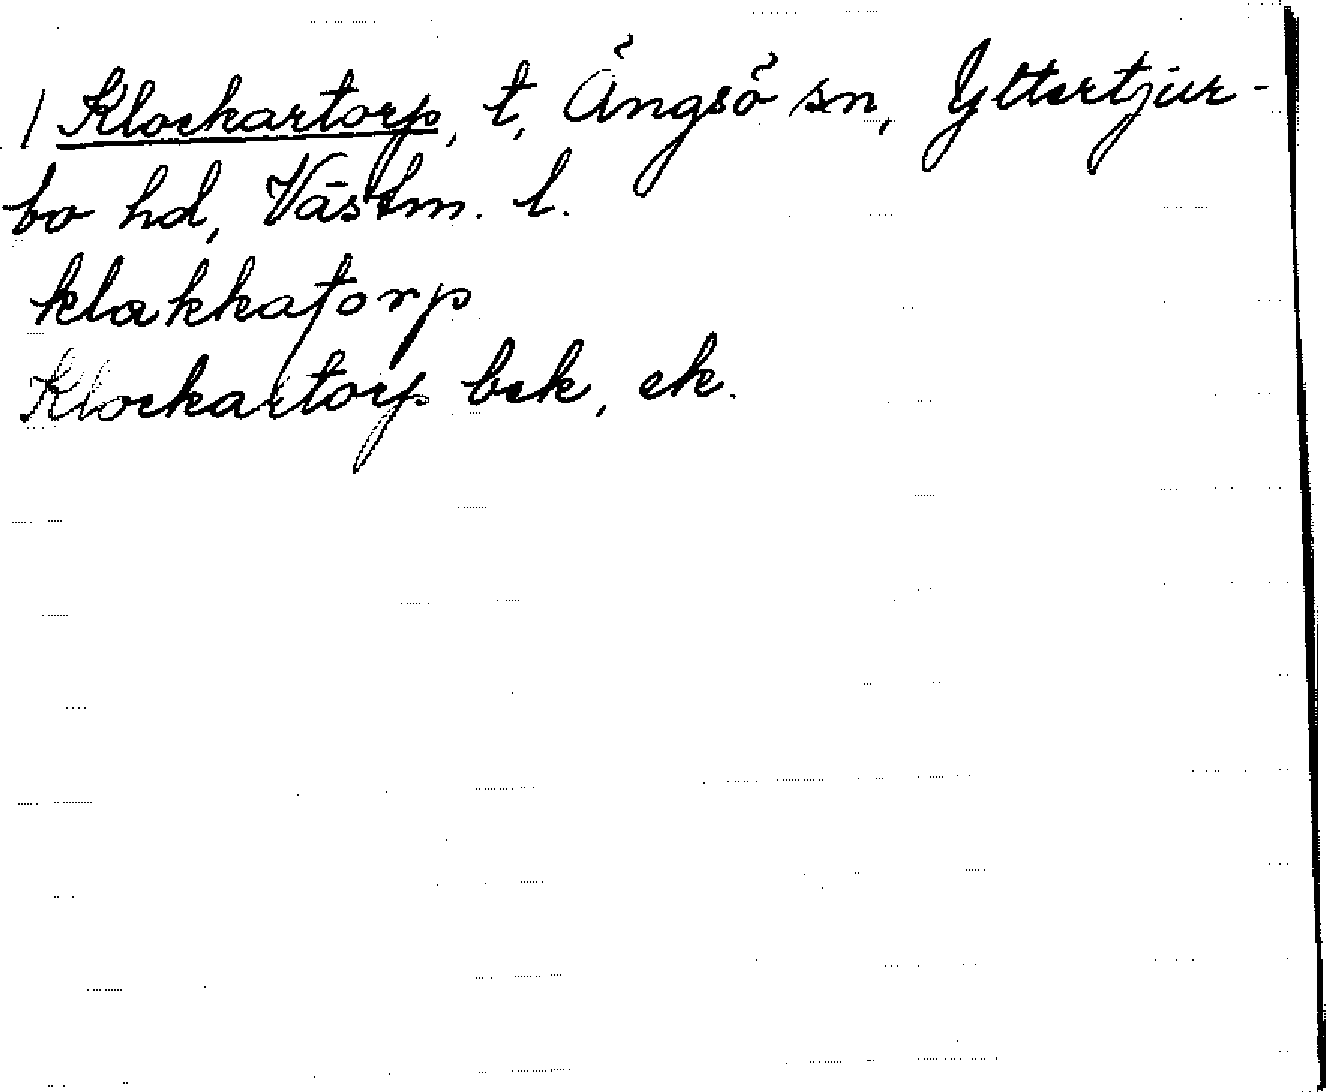 / Klockartorp, t, Ängsö sn, Yttertjur-
bo hd, Västm. l.
klakkatorp
Klockartorp bek, ek.